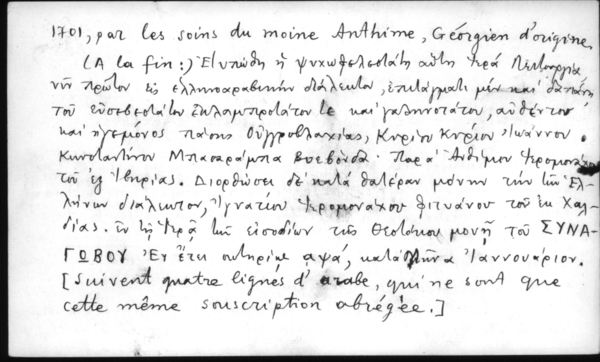 1701, par les soins du moine Anthime, Géorgien d'origine.
(A la fin:) Ἐτυπώθη ἡ ψυχωφελεστάτη αὕτη Ἱερά Λειτουργία
νῦν πρῶτον εἰς ἑλληνοαραβικήν διάλεκτον, ἐπιτάγματι μέν καί δαπάνῃ
τοῦ εὐσεβεστάτου ἐκλαμπροτάτου τε καί γαληνοτάτου, αὐθέντου
καί ἡγεμόνος πάσης Οὑγγροβλαχίας, Κυρίου Κυρίου Ἰωάννου
Κωνσταντίνου Μπασαράμπα Βοεβόνδα. Παρά Ἀνθίμου Ἱερομονάχου
τοῦ ἐξ Ἰβηρίας. Διορθώσει δέ κατά θατέραν μόνην τήν τῶν Ἑλ-
λήνων διάλεκτον, Ἰγνατίου Ἱερομονάχου Φιτυάνου τοῦ ἐκ Χαλ-
δίας. ἐν τῇ Ἱερᾷ τῶν εἰσοδίων τῆς Θεοτόκου μονῇ τοῦ ΣΥΝΑ-
ΓΩΒΟΥ Ἐν ἔτει σωτηρίας αψα, κατά μῆνα Ἰαννουάριον.
[Suivent quatre lignes d'arabe, qui ne sont que
cette même souscription abrégée.]